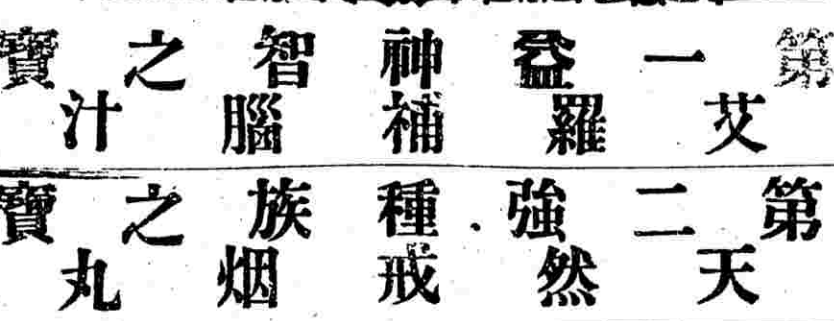 第一益神智之寶
艾羅補腦汁
第二強種族之寶
天然戒烟丸